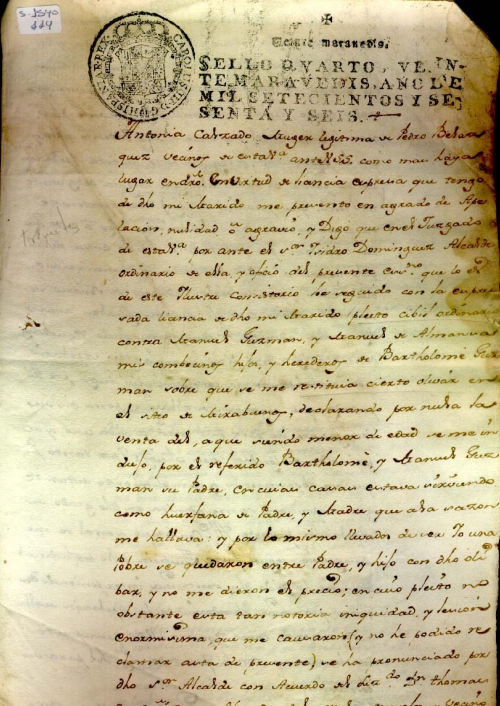 S-1540
114
CAROLUS III D G HISPANIAR REX
Veinte maravedis.
SELLO QVARTO, VEIN-
TE MARAVEDIS, AÑO DE
MIL SETECIENTOS Y SE-
SENTA Y SEIS.
Antonia Calzado Muger legitima de Pedro
quez vecinos de esta va. ante VSS. como mas haya
lugar en dro. En virtud de licencia expresa que tengo
de dho mi Marido, me presento en agrado de Ape
lacion, nulidad ô agravio, y Digo que en el Juzgado
de esta va. por ante el sor. Isidro Dominguez Alcalde
ordinario de ella, y oficio del presente essno. que lo es
de este Ilustre Consistorio he seguido con la expre
sada licencia de dho mi Marido pleito cibil ordinario
contra Manuel Guzman, y Manuel de Almansa
mis combecinos hijo, y herederos de Bartholomè Guz
man sobre que se me restituia cierto olivar en
el sitio de Mirabuenos, declarando por nula la
venta del, a que siendo menor de edad se me in
dujo, por el referido Bartholomè, y Manuel Guz
man su Padre, en cuias casas estava sirviendo
como huerfana de Padre, y Madre que a la sazon
me hallava: y por lo mismo llevados de ver Io una
Pobre se quedaron entre Padre, y hijo con dho oli
bar, y no me dieron el precio; en cuio pleito no
obstante esta tan notoria iniquidad, y lesion
enormisima, que me causaron (y no he podido re
clamar asta de presente) se ha pronunciado por
dho Sor. Alcalde con Acuerdo del Lizdo. Dn. Thomas